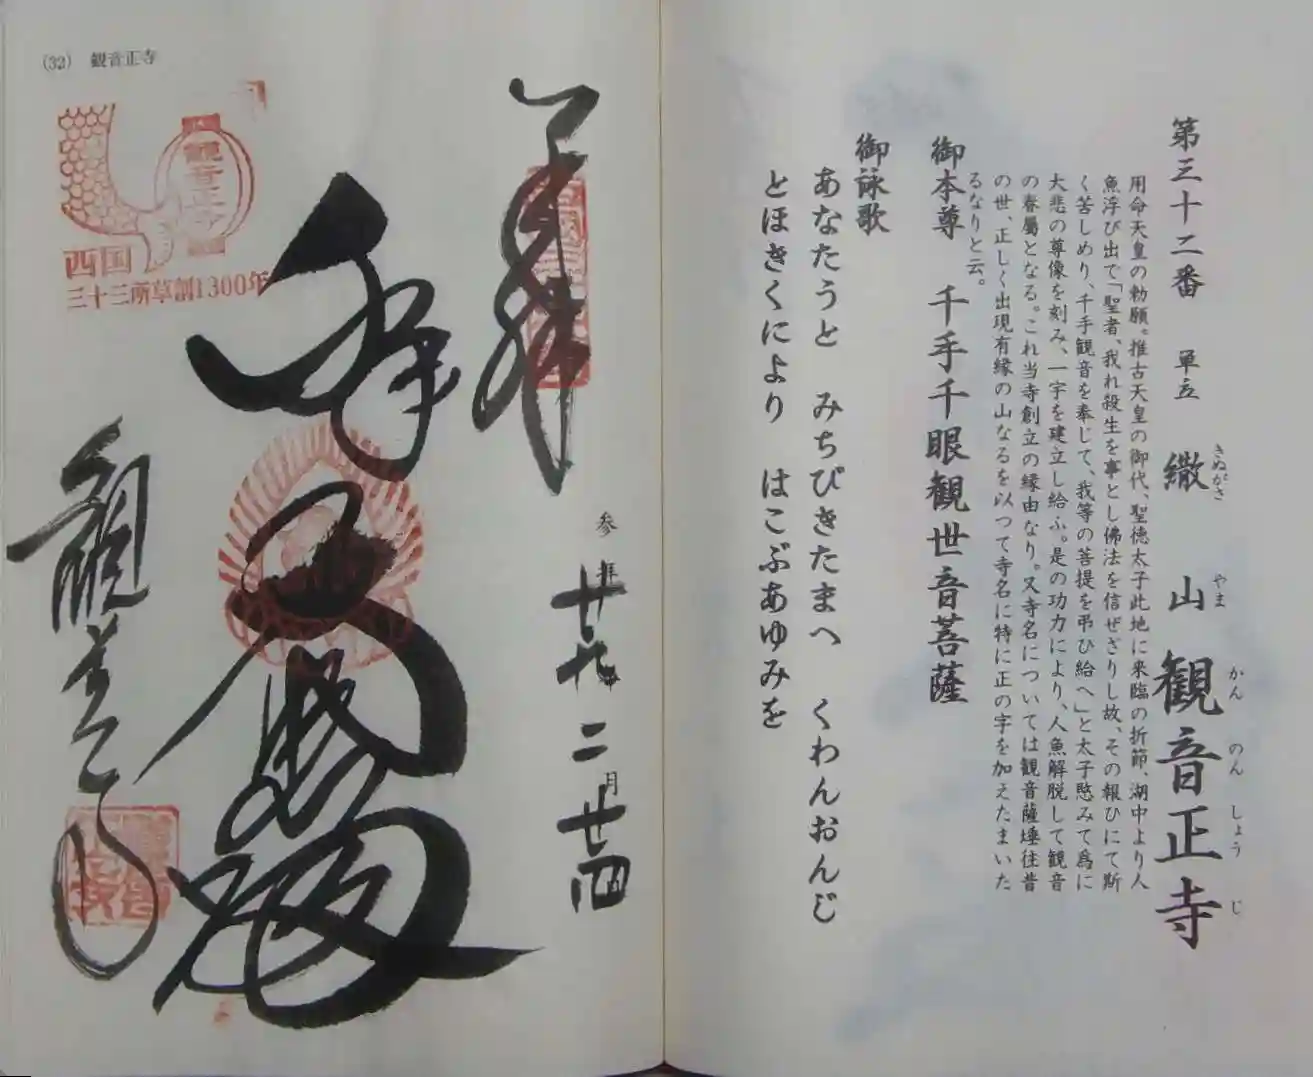 第三十二番 単立 繖山 観音正寺
きぬがさ やま かんのんしょうじ
用命天皇の勅願。推古天皇の御代、聖徳太子此地に来臨の折節、湖中より人
魚浮び出で「聖者、我れ殺生を事とし佛法を信ぜざりし故、その報ひにて斯
く苦しめり、千手観音を奉じて、我等の菩提を弔ひ給へ」と太子愍みて爲に
大悲の尊像を刻み、一宇を建立し給ふ。是の功力により、人魚解脱して観音
の眷屬となる。これ当寺創立の縁由なり。又寺名については観音薩埵往昔
の世、正しく出現有縁の山なるを以つて寺名に特に正の字を加えたまいた
るなりと云。
御本尊 千手千眼観世音菩薩
御詠歌
あなたうと みちびきたまへ くわんおんじ
とほきくにより はこぶあゆみを
(32) 観音正寺
奉拝
参拝 廿九 二月 廿四
観音正寺
西国
三十三所草創1300年